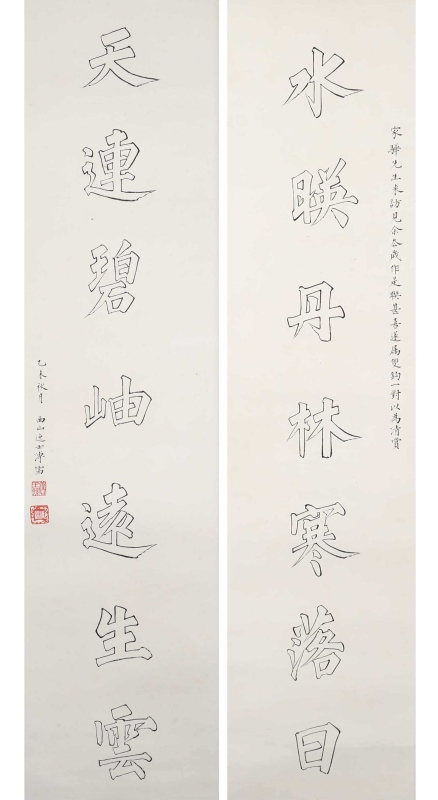 家驊先生来訪見余昝歲作是聮甚喜遂屬雙鈎一對以為清賞
水暎丹林寒落日
天連碧岫遠生雲
乙未秋月 西山逸士溥儒